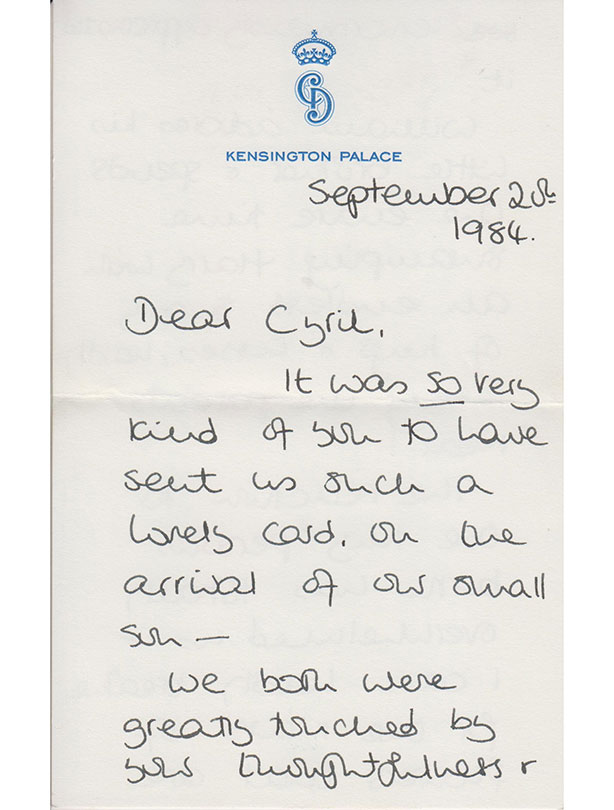 KENSINGTON PALACE
September 20th
1984.
Dear Cyril,
It was so very
kind of you to have
sent us such a
lovely card, on the
arrival of our small
son —
We both were
greatly touched by
your thoughtfulness &